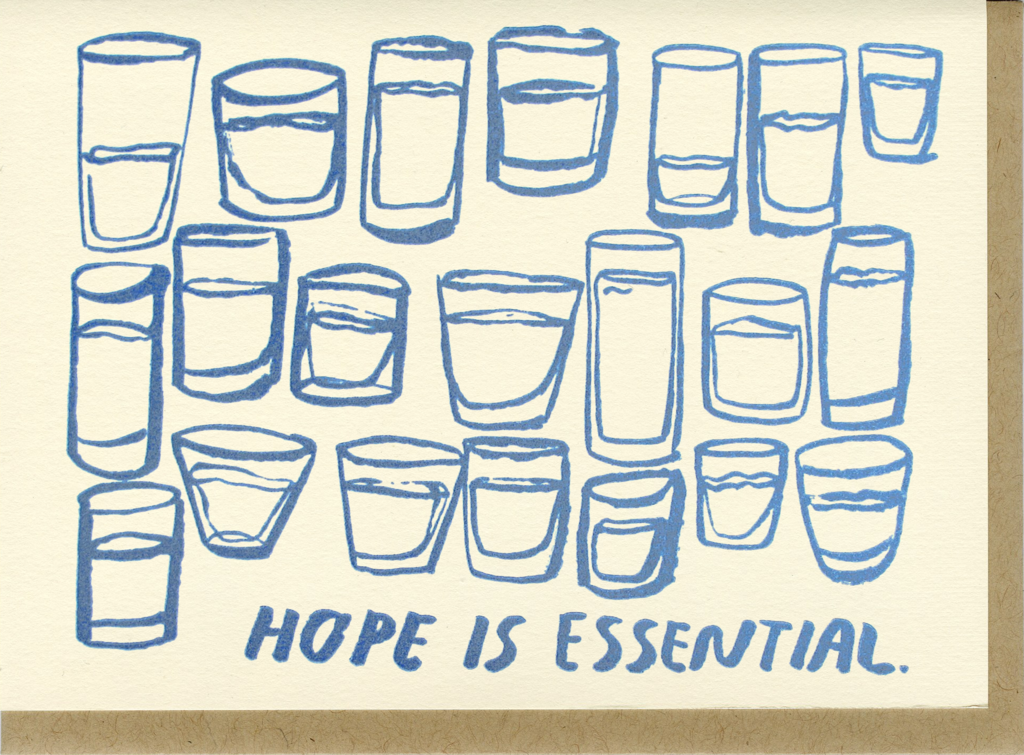 HOPE IS ESSENTIAL.